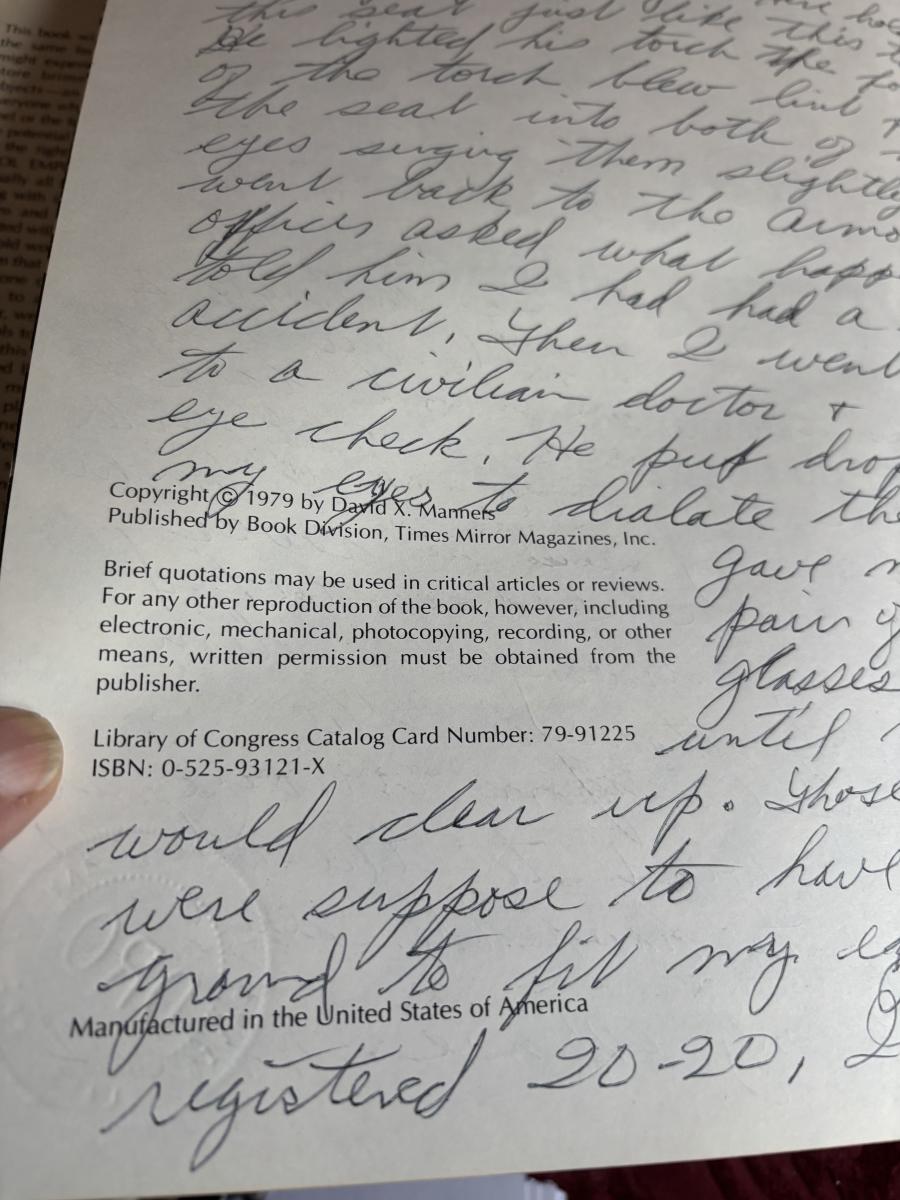 this seat just like this
He lighted his torch the fo
of the torch blew lint +
the seat into both of
eyes singing them slightly
went back to the armo
officer asked what happ
told him I had had a
accident. Then I went
to a civilian doctor +
eye check. He put drop
my eyes to dialate the
Copyright © 1979 by David X. Manners
Published by Book Division, Times Mirror Magazines, Inc.
gave
Brief quotations may be used in critical articles or reviews.
For any other reproduction of the book, however, including
pair
electronic, mechanical, photocopying, recording, or other
means, written permission must be obtained from the
glasses
publisher.
until
Library of Congress Catalog Card Number: 79-91225
ISBN: 0-525-93121-X
would clear up. Those
were suppose to have
ground to fit my
Manufactured in the United States of America
registered 20-20, I